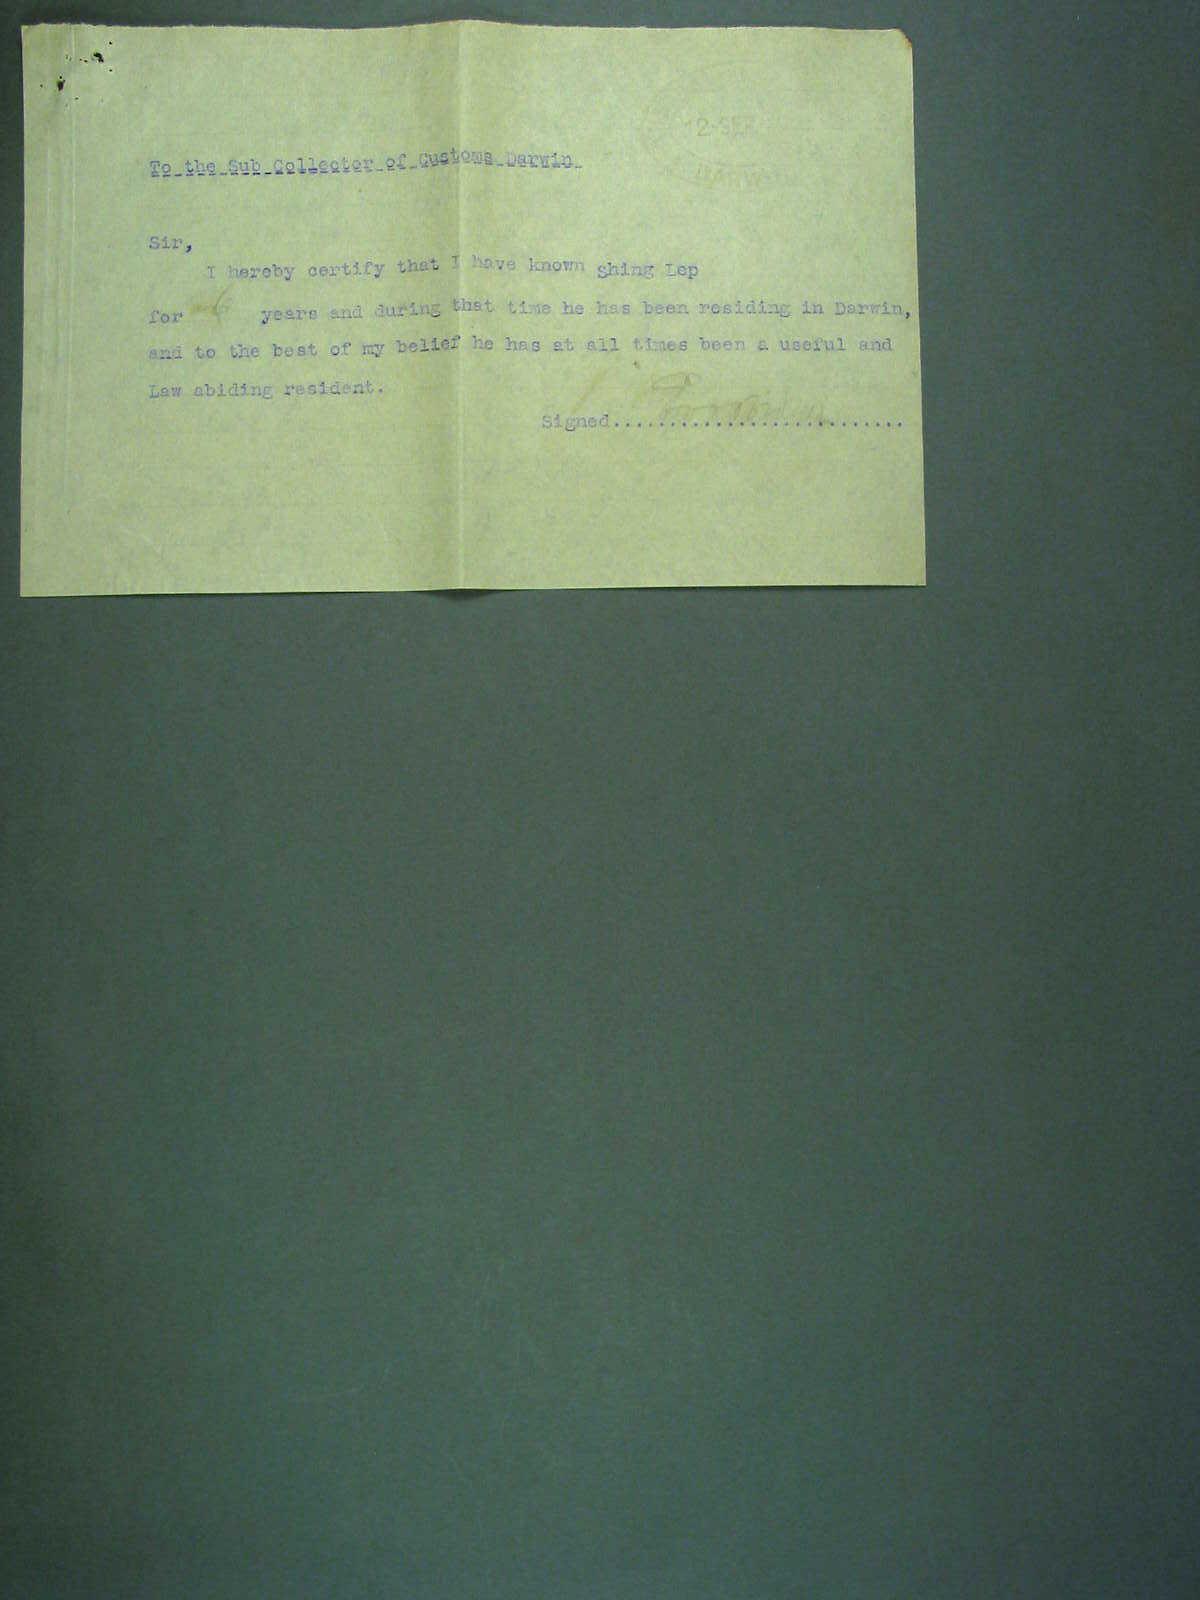 12 SEP
To the Sub Collector of Customs Darwin
Sir,
I hereby certify that I have known Shing Lep
for 6 years and during that time he has been residing in Darwin,
and to the best of my belief he has at all times been a useful and
Law abiding resident.
Signed...........................